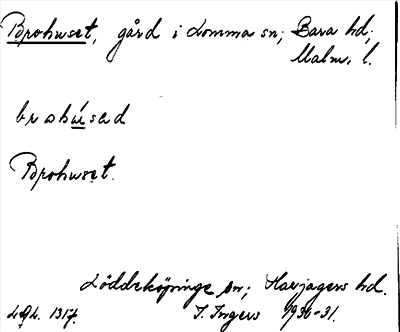 Brohuset, gård i Lomma sn; Bara hd;
Malm. l.
brohúsad
Brohuset.
Löddeköpinge sn; Harjagers hd.
I. Ingers 1930-31.